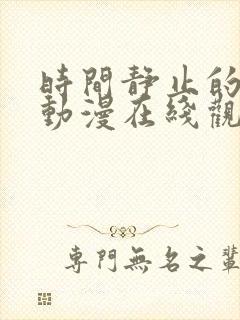 時間靜止的
動漫在綫觀
專門無名之輩